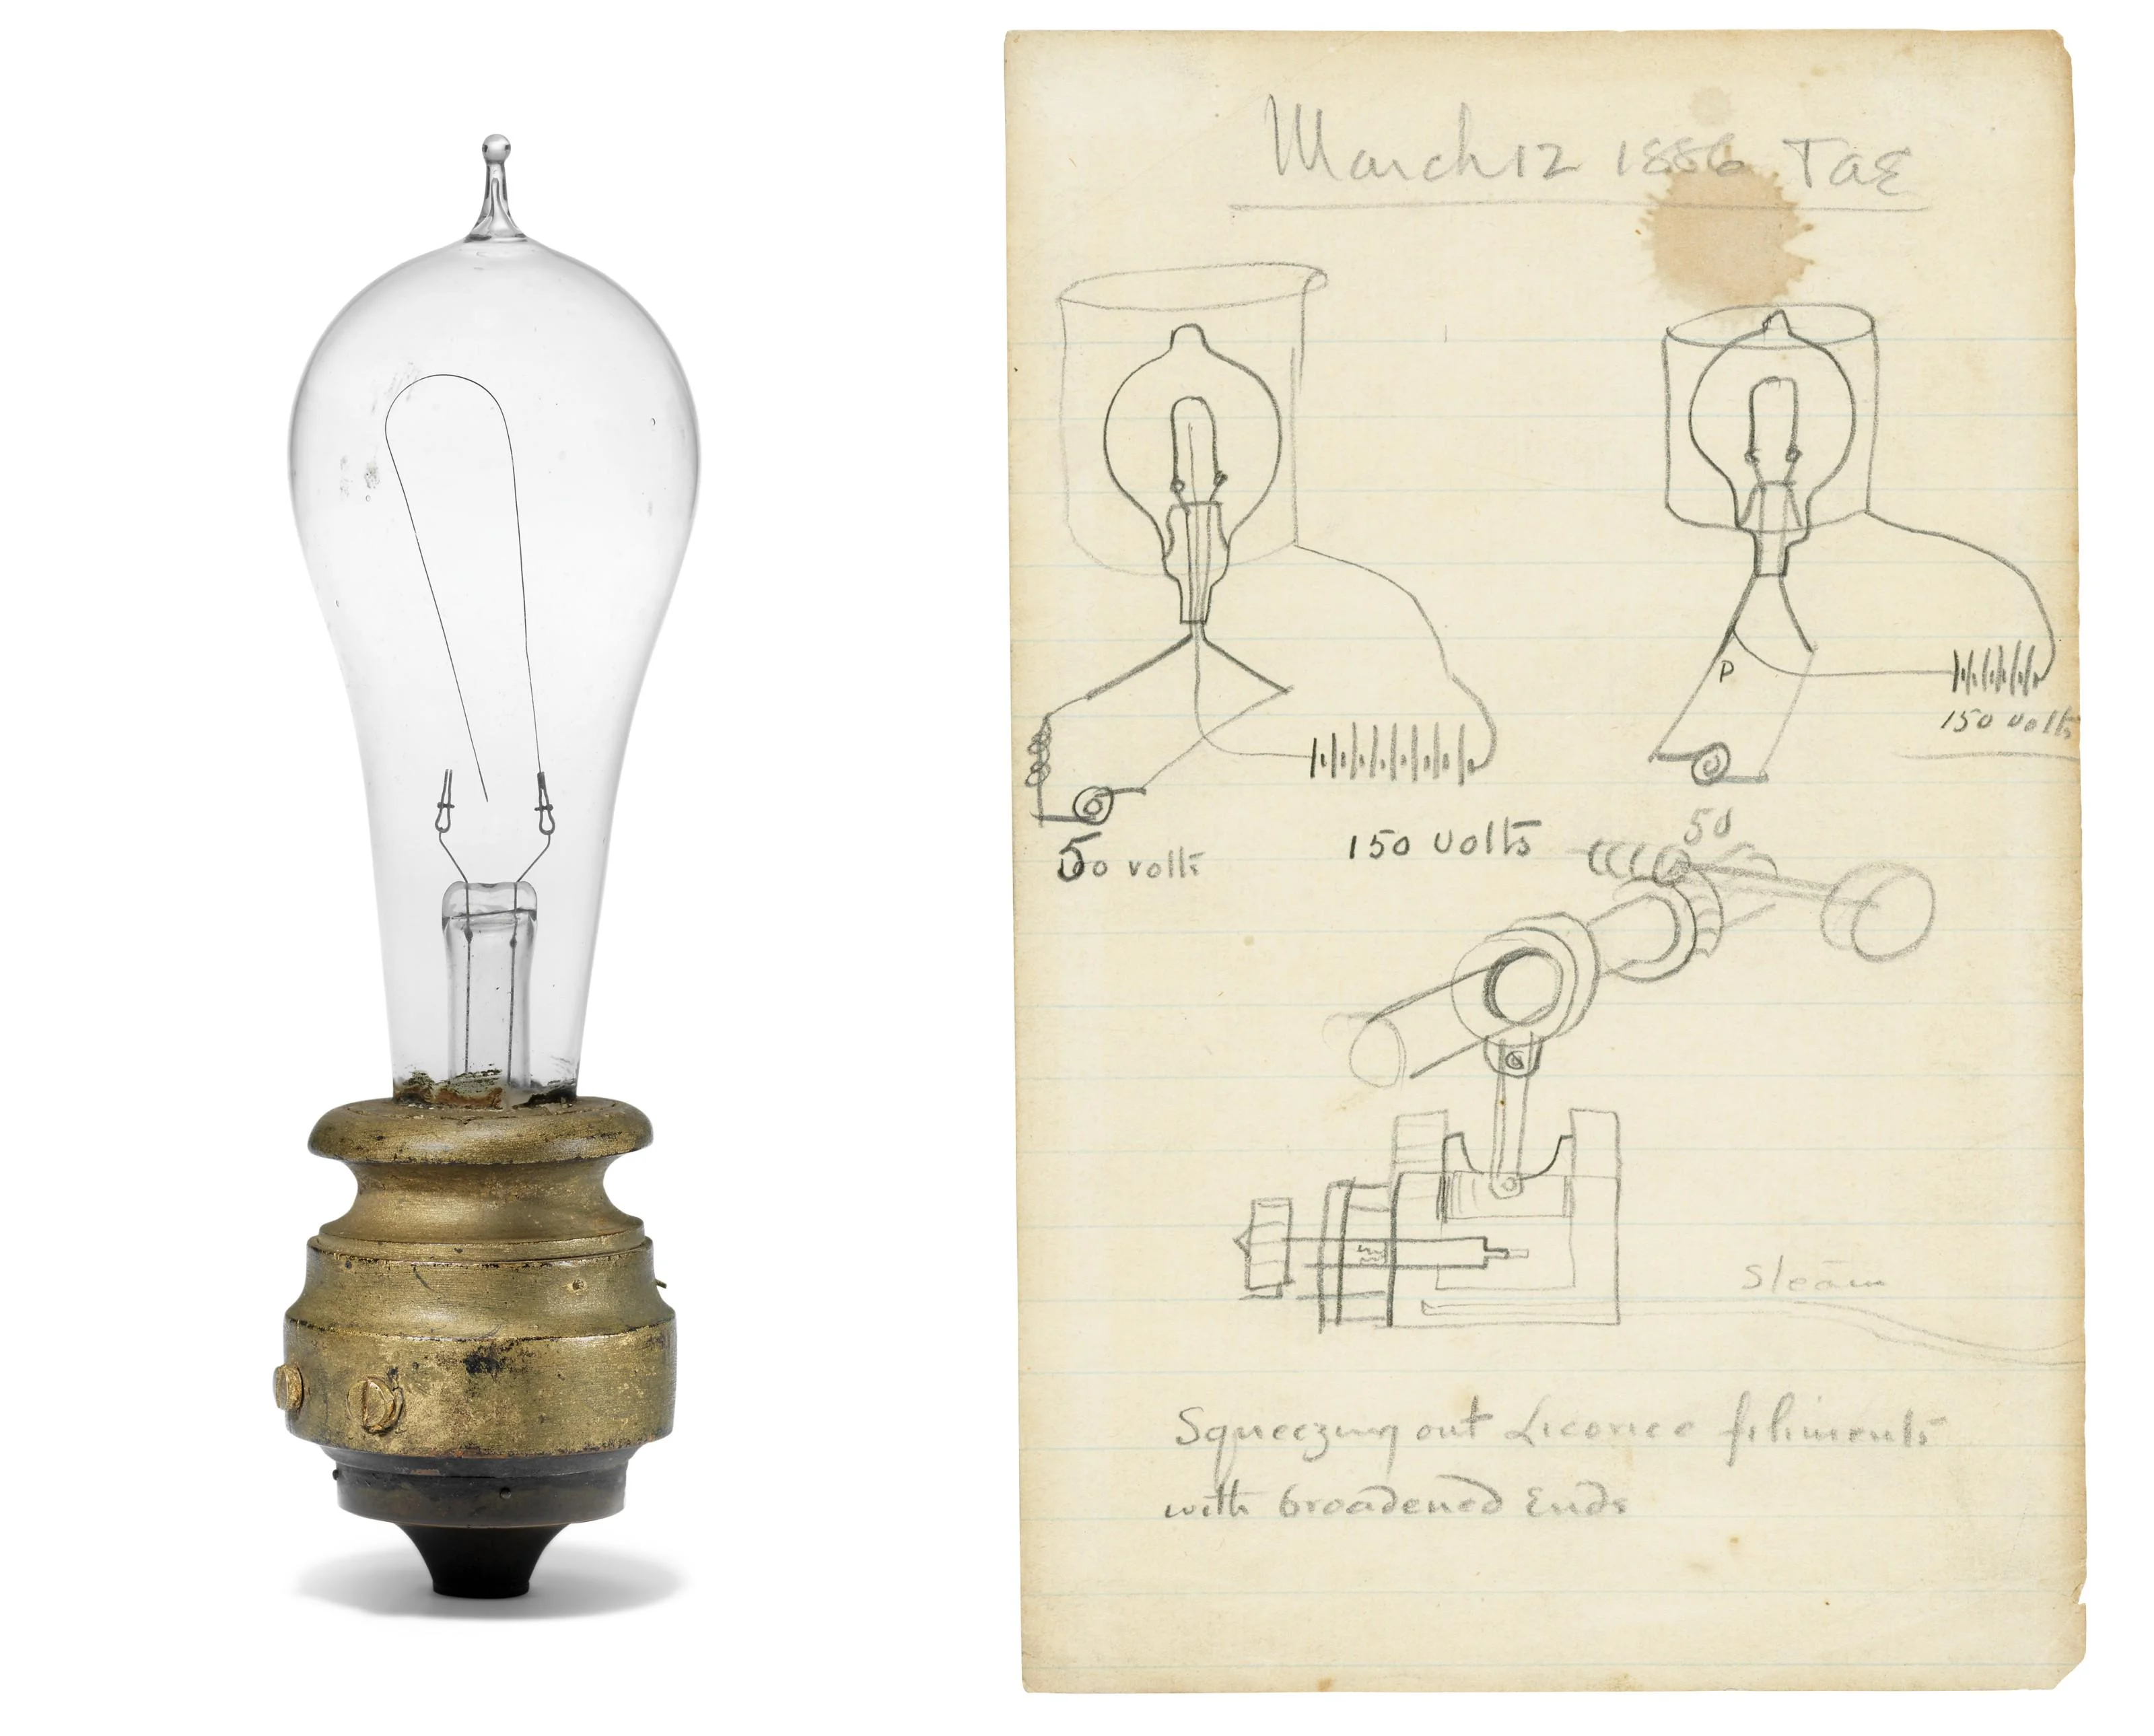 March 12 1886 TAE
P
150 volts
50
50 volts
150 volts
Steam
Squeezing out Licorice filiments
with broadened Ends